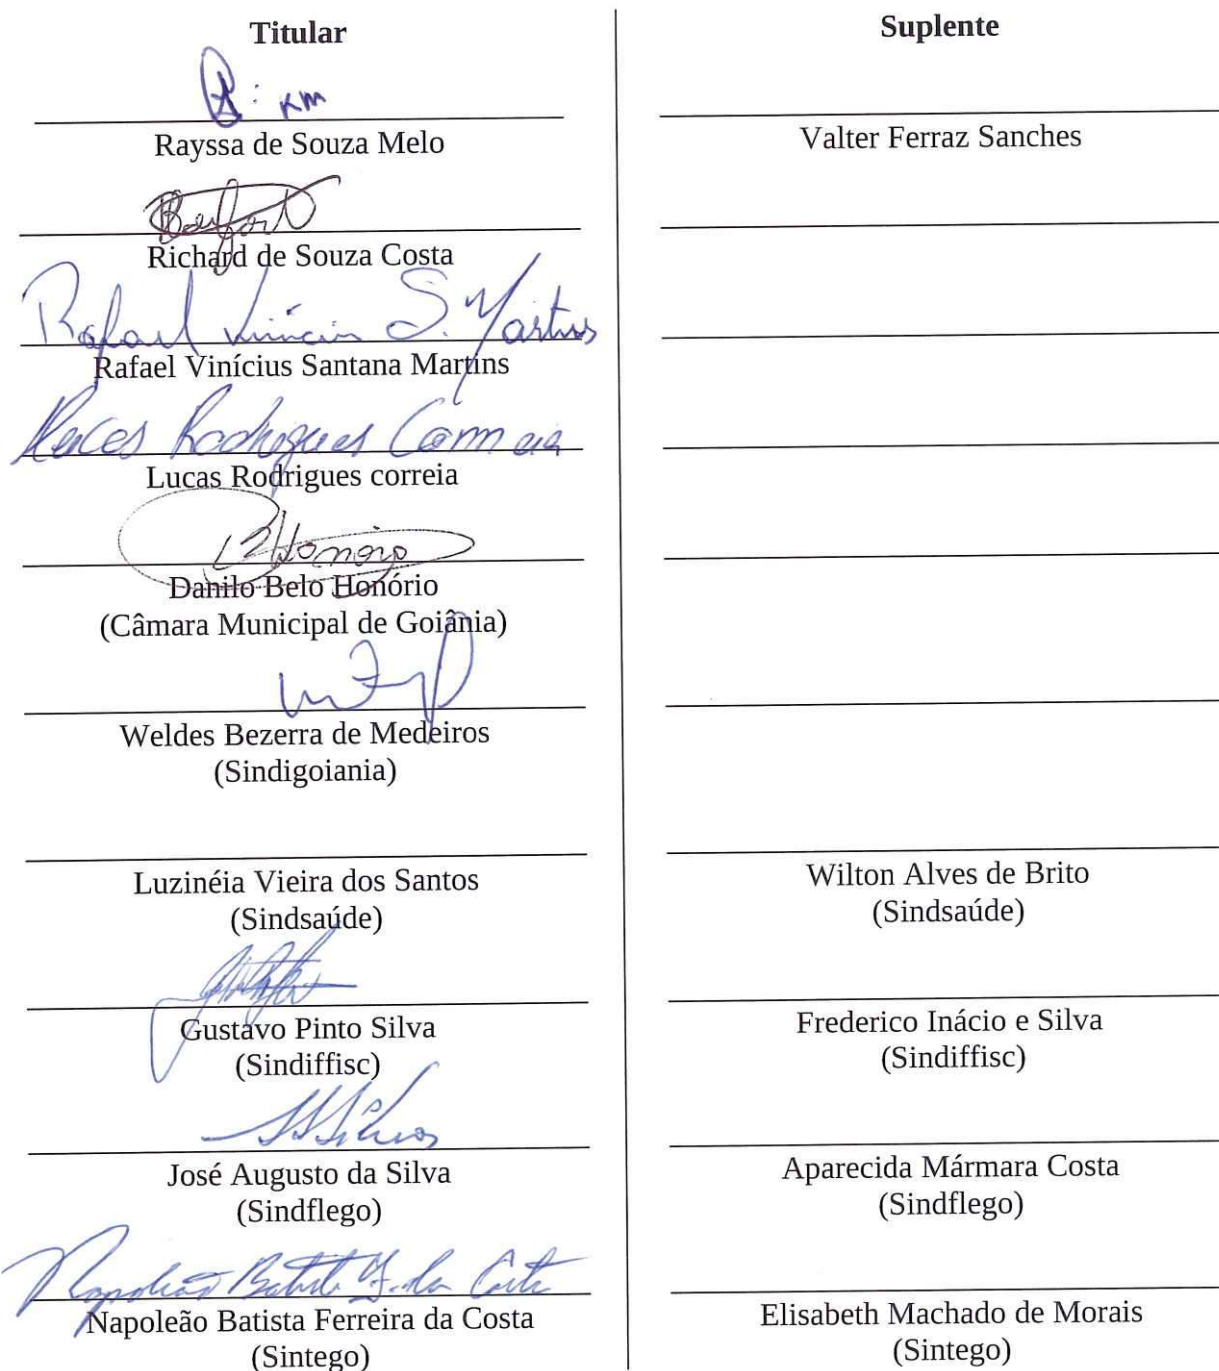 Titular
Rayssa de Souza Melo
Richard de Souza Costa
Rafael Vinícius S. Martins
Rafael Vinícius Santana Martins
Lucas Rodrigues Correia
Lucas Rodrigues correia
Honório
Danilo Belo Honório
(Câmara Municipal de Goiânia)
Weldes Bezerra de Medeiros
(Sindigoiania)
Luzinéia Vieira dos Santos
(Sindsaúde)
Gustavo Pinto Silva
(Sindiffisc)
José Augusto da Silva
(Sindflego)
Napoleão Batista F. da Costa
Napoleão Batista Ferreira da Costa
(Sintego)
Suplente
Valter Ferraz Sanches
Wilton Alves de Brito
(Sindsaúde)
Frederico Inácio e Silva
(Sindiffisc)
Aparecida Mármara Costa
(Sindflego)
Elisabeth Machado de Morais
(Sintego)